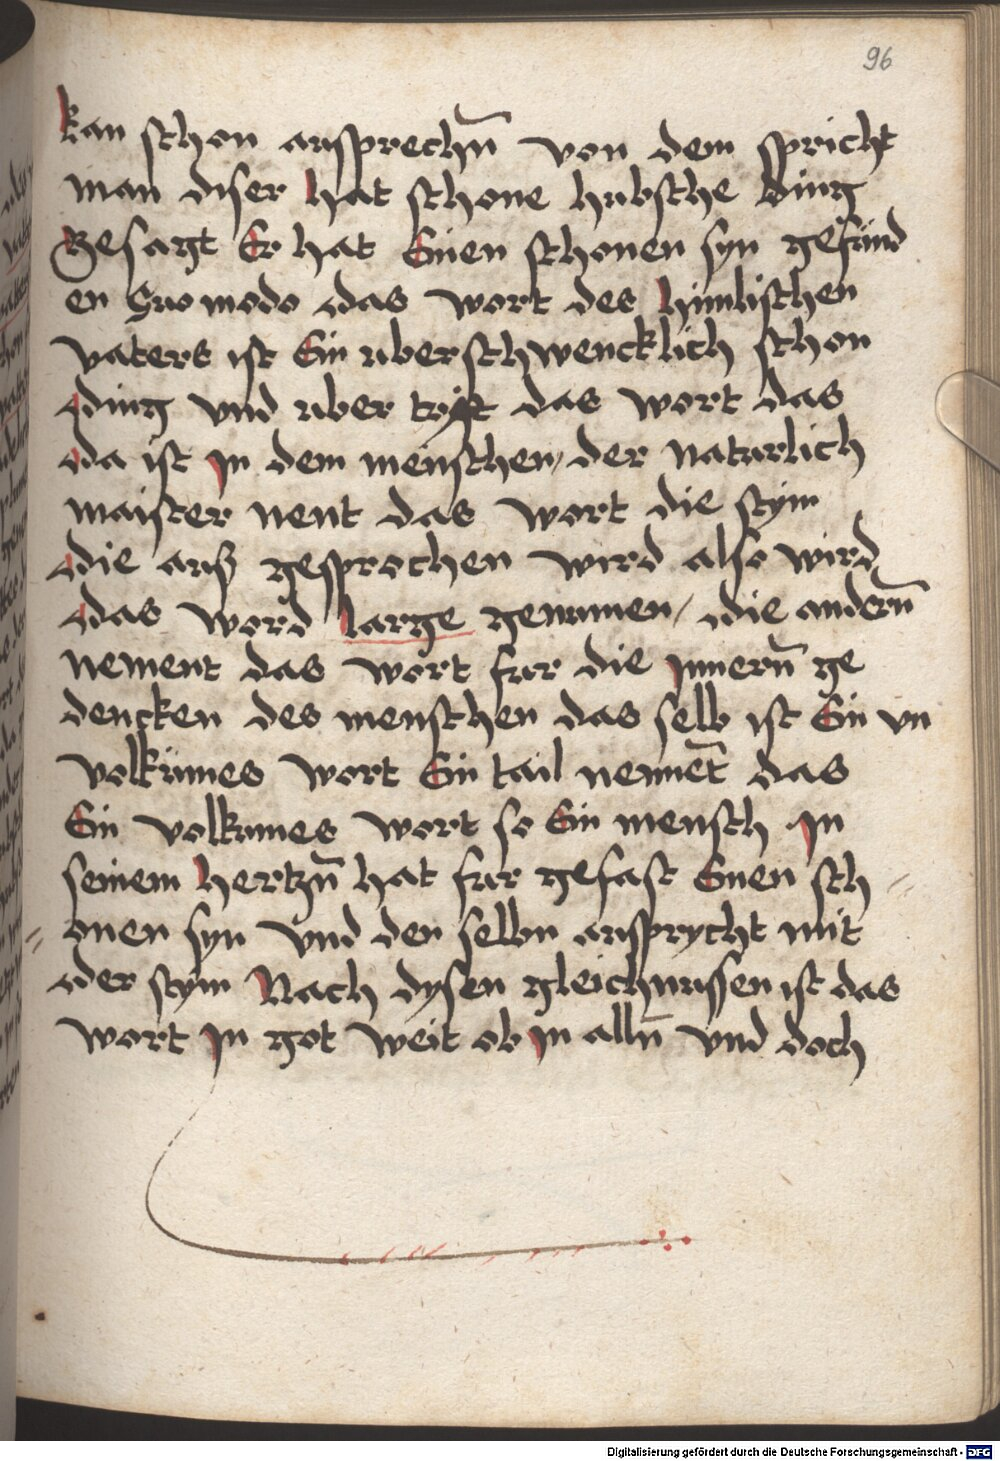 96
kan schon aussprechn̄ von dem spricht
man diser hat schone hubsche ding
Gesagt Er hat Einen schonen syn gefund
en Quo modo das wort des himlischen
vaters ist Ein uberschwencklich schon
ding vnd uber trift das wort das
da ist in dem menschen / der naturlich
maister nent das wort die stym
die auß gesprochen wird also wird
das word large genumen / die andern̄
nement das wort fur die innern̄ ge
dencken des menschen das selb ist Ein vn
volkumes wort Ein tail nennet̄ das
Ein volkumes wort so Ein mensch in
seinem hertzn̄ hat fur gefast Einen sch
onen syn vnd den selbn aussprycht mit
der stym Nach dysen gleichnussen ist das
wort in got weit ob in alln̄ vnd doch
Digitalisierung gefördert durch die Deutsche Forschungsgemeinschaft - DFG